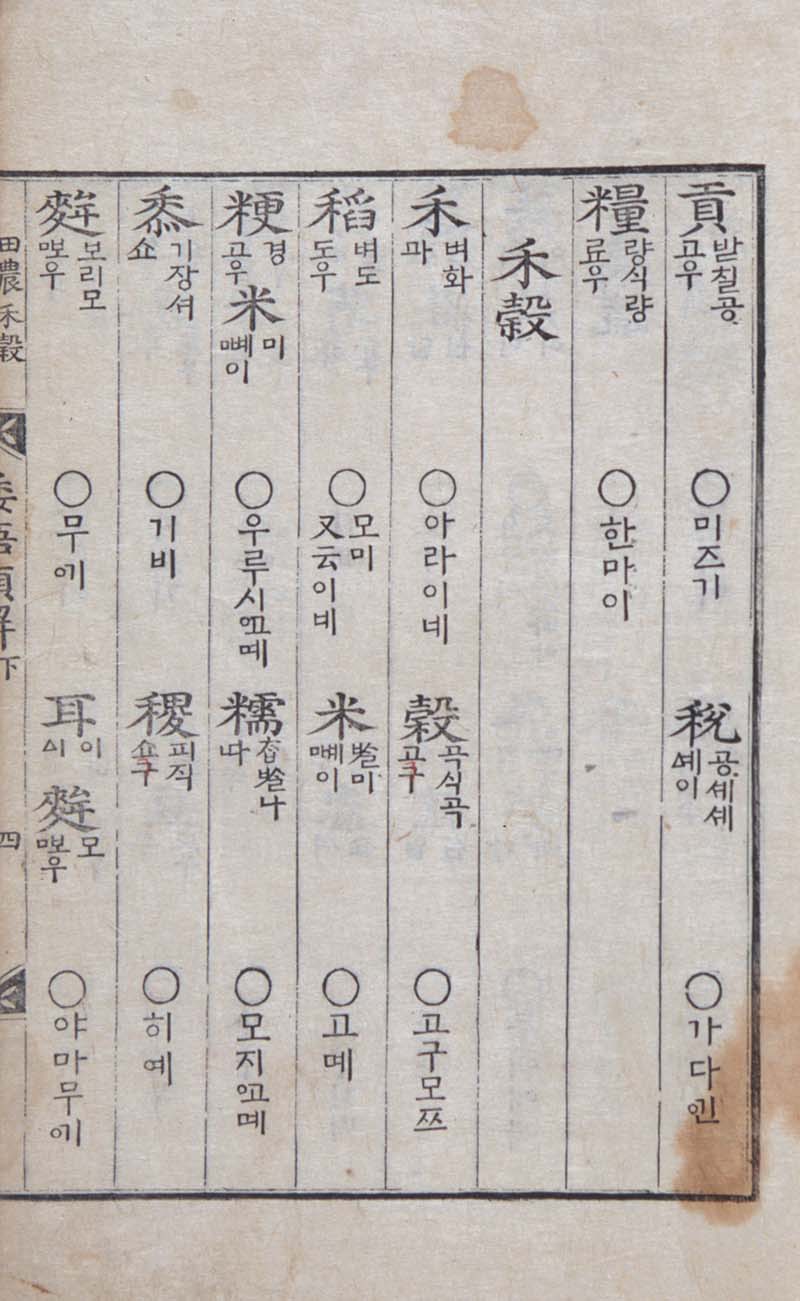 貢 받칠공 고우 ○미즈기 稅 공셰셰 셰이
糧 량식량 료우 ○한마이
禾穀
禾 벼화 파 ○아라이녜 穀 곡식곡 고구 ○고구모쯔
稻 벼도 도우 ○모미 又云이녜 米 ᄡᆞᆯ미 ○고몌
粳 경 고우 米 미 ○우루시ᅌᅩ몌 糯 찹ᄡᆞᆯ나 따 ○모지ᅌᅩ몌
黍 기장셔 쇼 ○기비 稷 피직 쇼구 ○히예
麰 보리모 ○무ᅌᅦ 耳 이 시 麰 모 ○야마무ᅌᅦ
田農 禾穀 倭語類解下 四